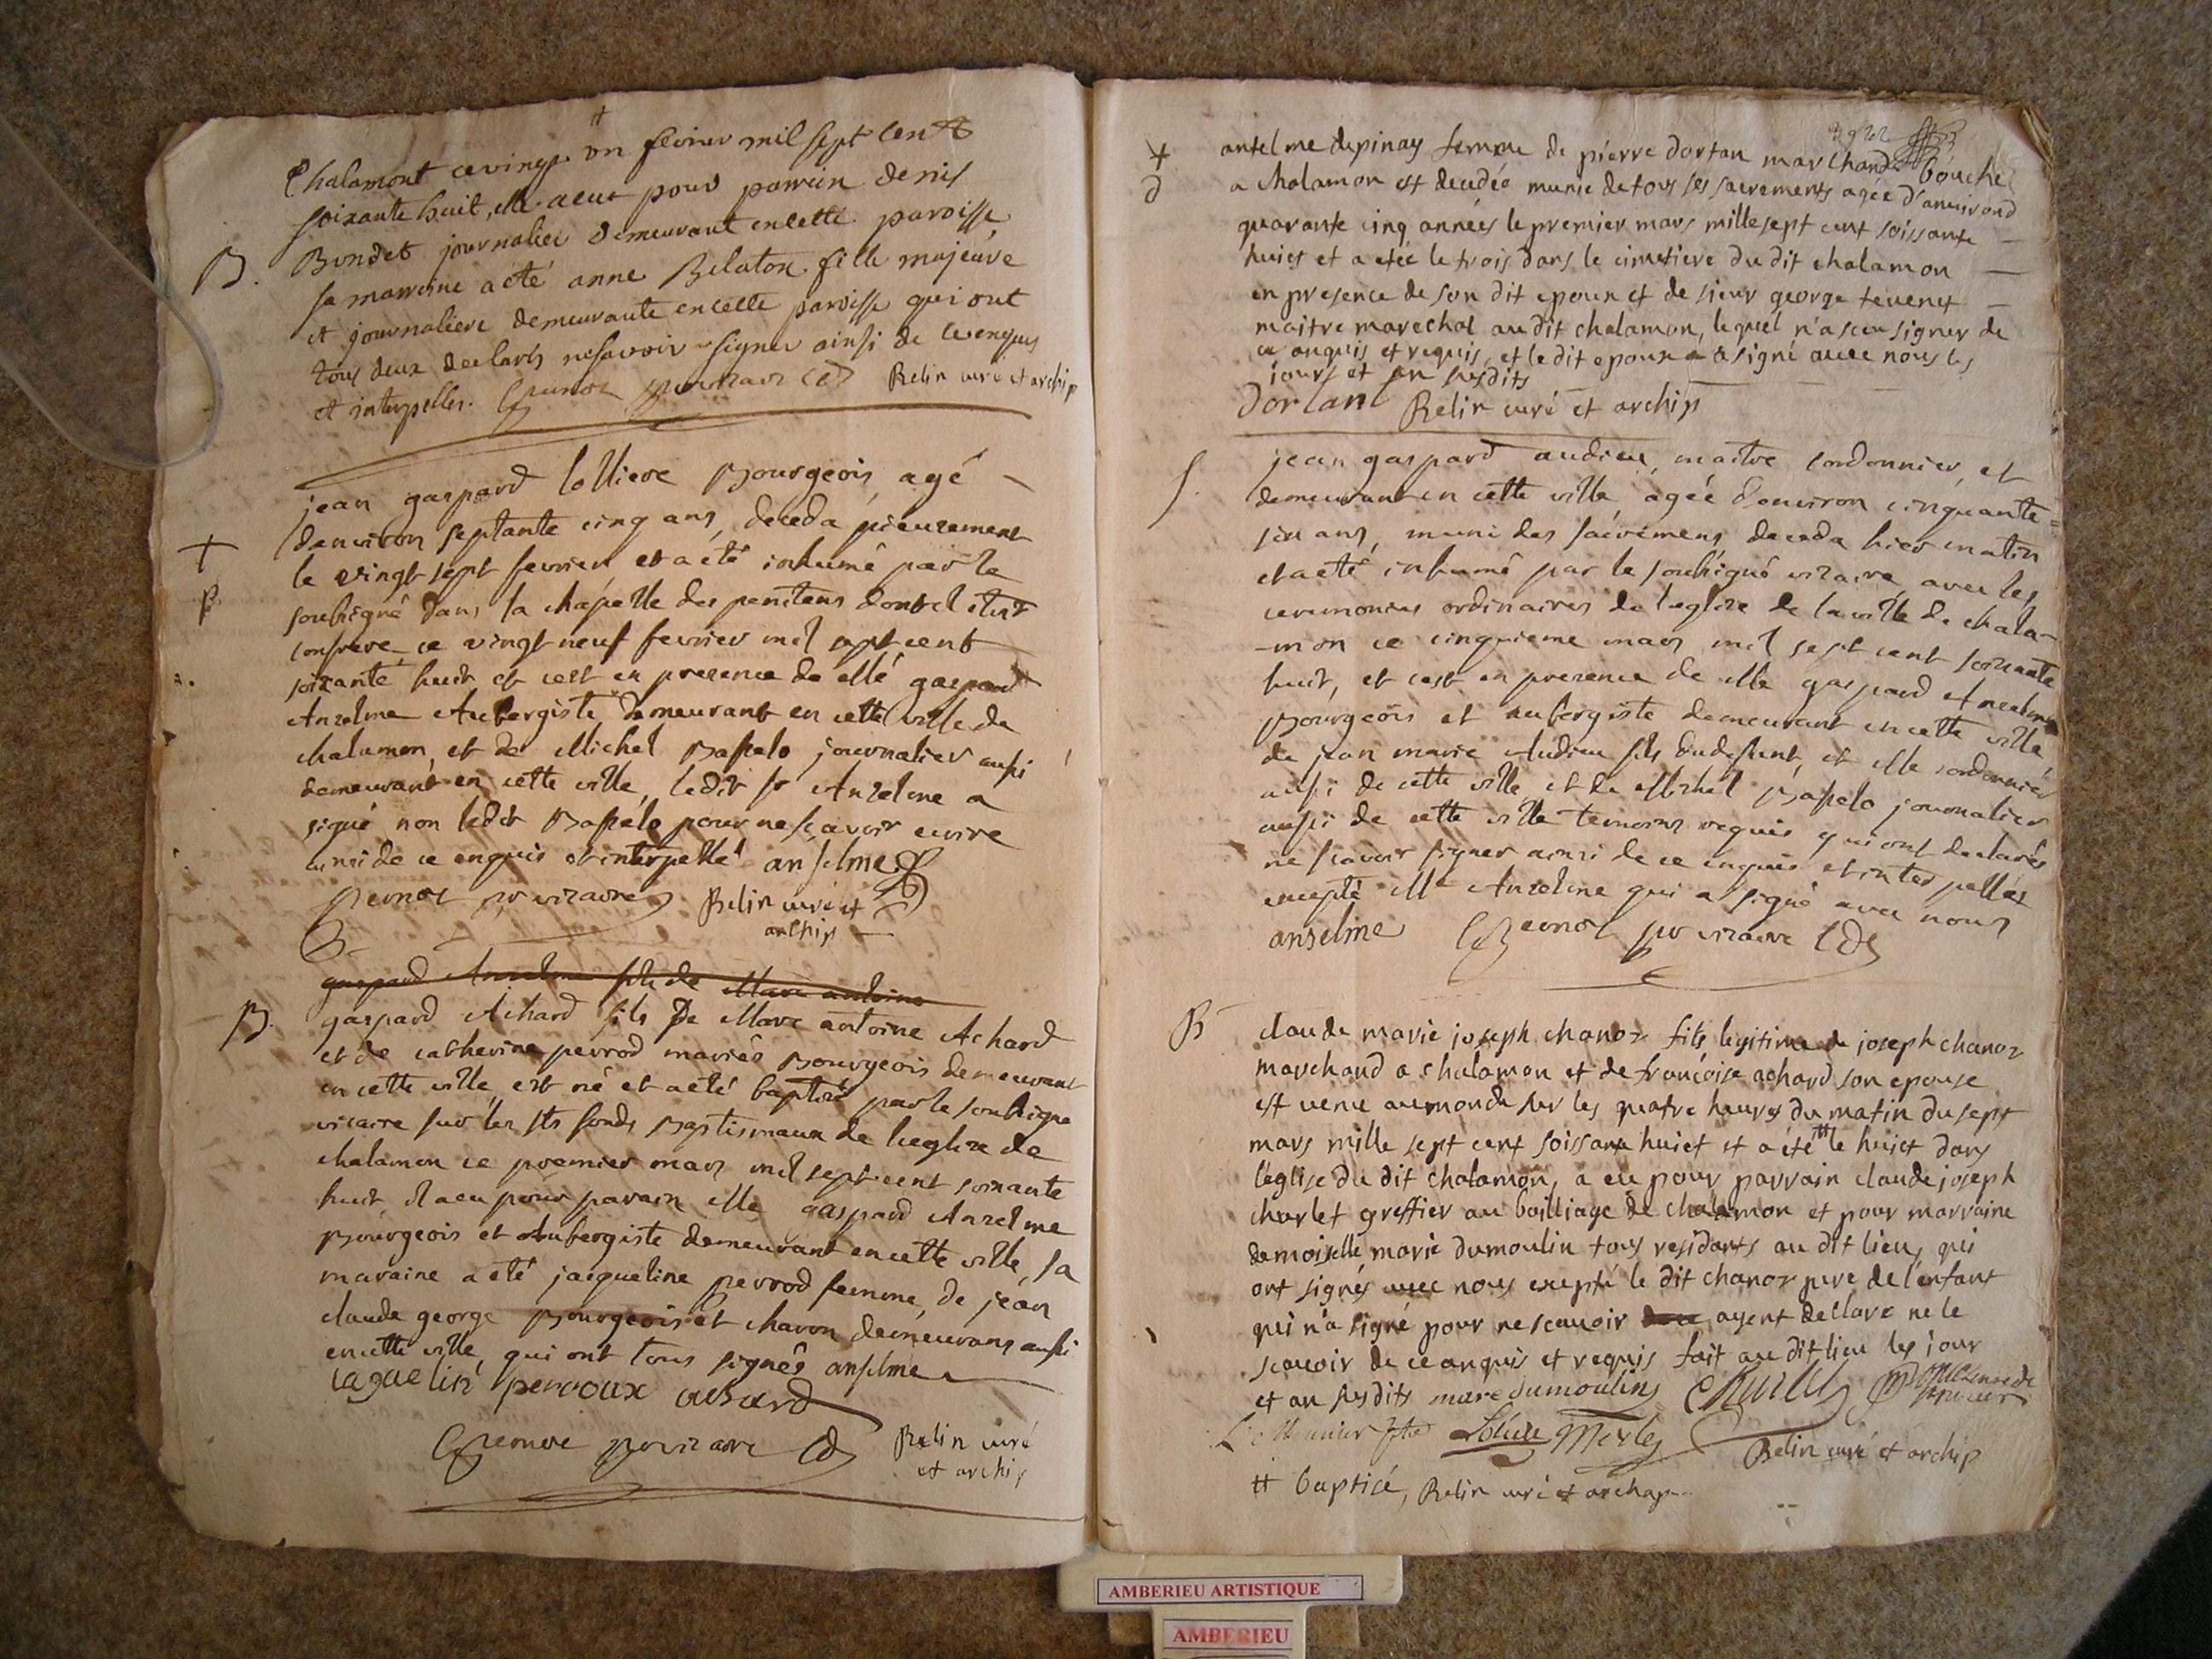 Chalamont ce vingt un fevrier mil sept cent
soixante huit, elle a eut pour parrein denis
B. Bondet journalier demeurant en cette paroisse,
sa marreine a été anne Belaton fille majeure
et journaliere demeurante en cette paroisse qui ont
tous deux declarés ne savoir signer ainsi de ce enquis
et interpellés. Belin curé et archip
jean gaspard lolliere Bourgeois agé
d'environ septante cinq ans, deceda pieusement
le vingt sept fevrier et a été inhumé par le
soussigné dans la chapelle des penitens dont il etoit
confrere ce vingt neuf fevrier mil sept cent
soixante huit et cest en presence de Me gaspard
Anzelme Aubergiste demeurant en cette ville de
chalamon, et de Michel Bassalo journalier aussi
demeurant en cette ville, ledit sr Anzelme a
signé non ledit Bassalo pour ne sçavoir ecrire
ainsi de ce enquis et interpellé anselme
pernot pr vicaire Belin curé et
archip
gaspard Anzelme fils de Marc antoine
B. gaspard Achard fils De Marc antoine Achard
et de catherine perrod mariés Bourgeois demeurant
en cette ville, est né et a été baptisé par le soussigné
vicaire sur les sts fonds Baptismaux de l'eglize de
chalamon ce premier mars mil sept cent soixante
huit, il a eu pour parain Me gaspard Anzelme
Bourgeois et Aubergiste demeurant en cette ville, sa
maraine a été jacqueline perrod femme de jean
claude george Bourgeois et charon demeurans aussi
en cette ville, qui ont tous signés anselme
jaquelin perroux achard
pernot pr vicaire Belin curé
et archip
antelme depinay femme de pierre dortan marchand boucher
a chalamon est decedée munie de tous ses sacrements agée d'anviron
quarante cinq années le premier mars mille sept cent soissante
huict et a etée le trois dans le cimetiere du dit chalamon
en presence de son dit epoux et de sieur george tevenet
maitre marechal au dit chalamon, lequel n'a sceu signer de
ce anquis et requis, et le dit epoux a signé avec nous les
jours et an susdits
Dortant Belin curé et archip
jean gaspard audieu, maitre cordonnier, et
demeurant en cette ville, agée d'environ cinquante
six ans, muni des sacremens deceda hier matin
et a été inhumé par le soussigné vicaire avec les
ceremonies ordinaires de l'eglize de la ville de chala-
-mon ce cinquieme mars mil sept cent soixante
huit, et cest en presence de Me gaspard Anzelme
Bourgeois et aubergiste demeurant en cette ville,
de jean marie Audieu fils du defunt, et Me cordonnier
aussi de cette ville, et de Michel Bassalo journalier
aussi de cette ville temoins requis qui ont declarés
ne scavoir signer ainsi de ce enquis et interpellés
excepté Me Anzelme qui a signé avec nous
anselme pernot pr vicaire
B claude marie joseph chanoz fils legitime de joseph chanoz
marchand a chalamon et de françoise achard son epouse
est venu au monde sur les quatre heures du matin du sept
mars mille sept cent soissante huict et a été # le huict dans
l'eglise du dit chalamon, a eu pour parrain claude joseph
charlet greffier au bailliage de chalamon et pour marraine
demoiselle marie dumoulin tous residants au dit lieu, qui
ont signés avec nous excepté le dit chanoz pere de l'enfant
qui n'a signé pour ne scavoir ayent declare ne le
scavoir de ce anquis et requis fait au dit lieu les jour
et an susdits marie dumoulin charlet
Merle Belin curé et archip
# baptisé, Belin curé et archip
AMBERIEU ARTISTIQUE
AMBERIEU